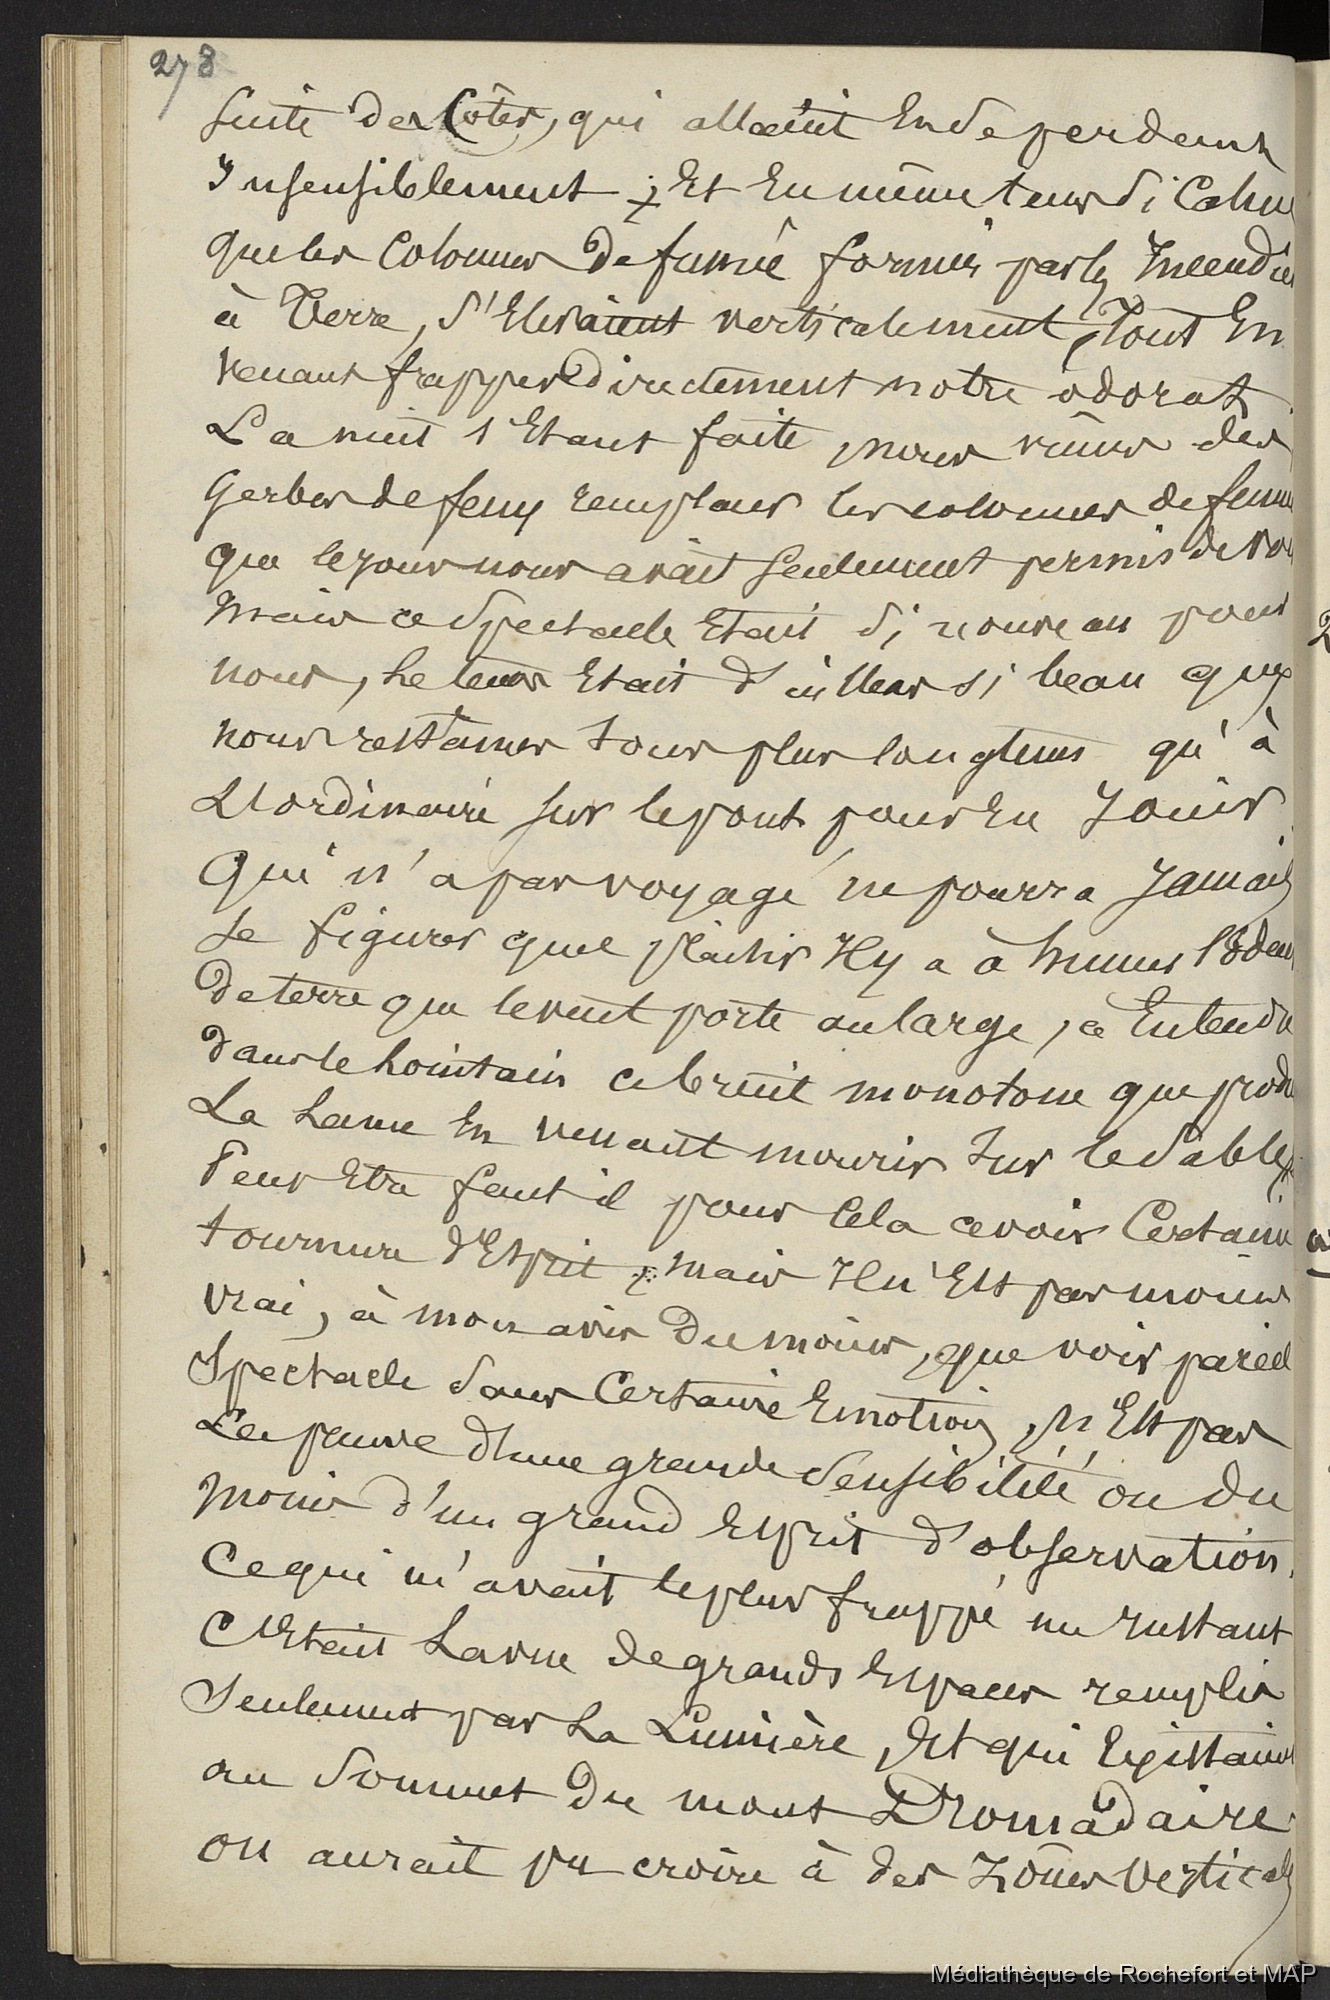 278
suite des Côtes, qui allaient En se perdant
Insensiblement ; Et En même tems si Calme
que les Colonnes De fumée formées par les Incendies
à Terre, s'Elevaient verticalement, Tout En
venant frapper directement notre odorat.
La nuit s'Etant faite, nous vimes des
Gerbes de feux remplacer les colonnes de fumée
que le jour nous avait seulement permis de voir
mais ce Spectacle Etait si nouveau pour
nous, Le tems Etait d'ailleurs si beau que
nous restâmes tous plus longtems qu'à
L'ordinaire sur le pont pour En Jouir.
Qui n'a pas voyagé ne pourra Jamais
se figurer quel plaisir Il y a à humer l'Odeur
De terre que le vent porte au large, à Entendre
Dans le Lointain ce bruit monotone que produit
La Lame En venant mourir sur le Sable,
Peut Etre faut il pour Cela avoir Certaine
tournure d'Esprit ; mais Il n'Est pas moins
vrai, à mon avis Du moins, que voir pareil
Spectacle sans Certaine Emotion, N'Est pas
La preuve d'une grande Sensibilité ou du
moins d'un grand Esprit d'observation.
Ce qui m'avait le plus frappé un Instant
C'Etait La vue de grands Espaces remplis
Seulement par La Lumière, Et qui Existaient
au Sommet Du mont Dromadaire
on aurait pu croire à des Zônes Verticales
Médiathèque de Rochefort et MAP